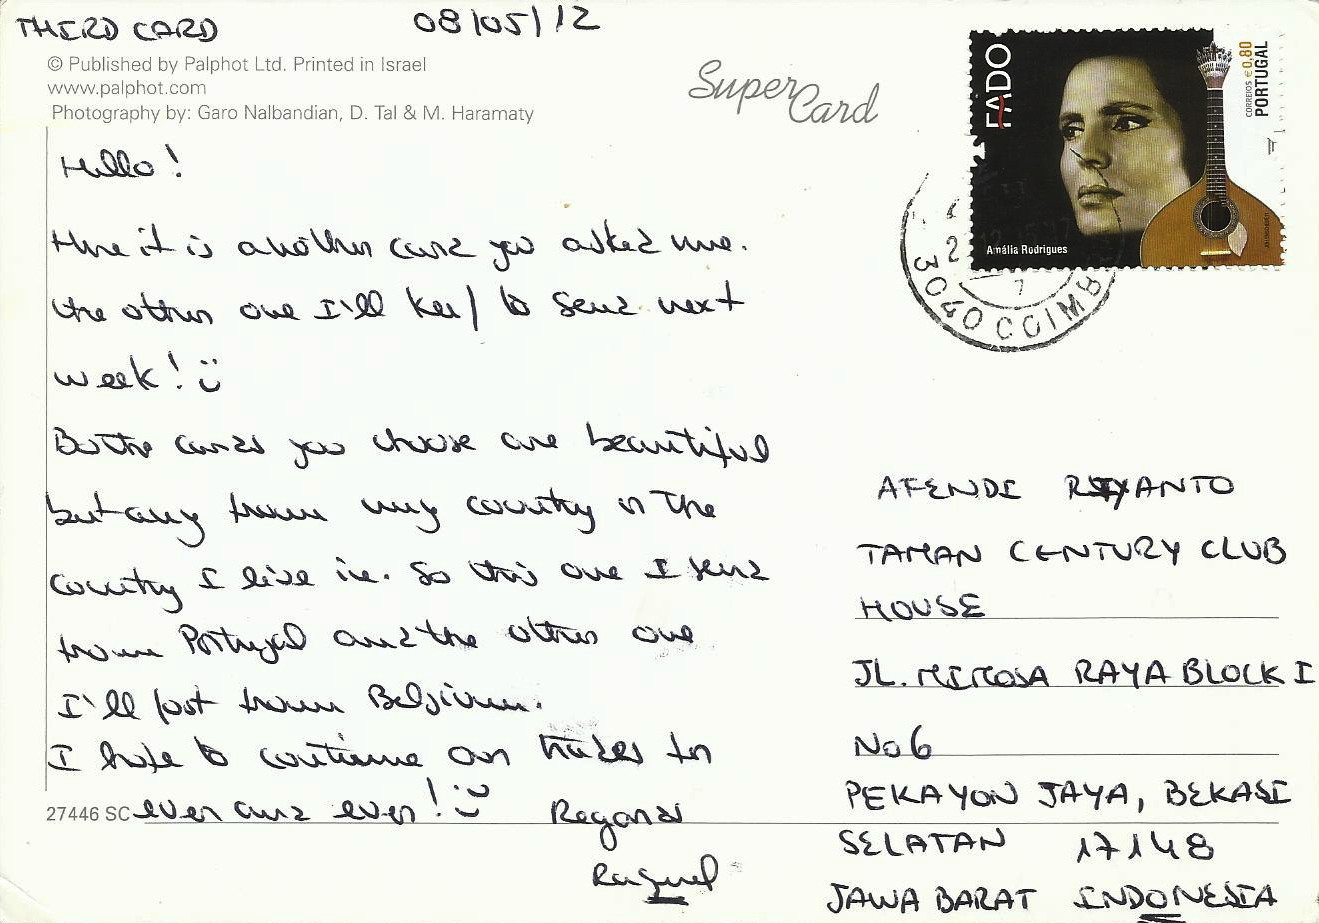 THIRD CARD 08/05/12
© Published by Palphot Ltd. Printed in Israel
www.palphot.com
Photography by: Garo Nalbandian, D. Tal & M. Haramaty
Super Card
FADO
CORREIOS €0,80
PORTUGAL
Amália Rodrigues
3040 COIMB
Hello!
Here it is another card you asked me.
the other one I'll keep to send next
week! :)
Bothe cards you choose are beautiful
but any from my country or the
country I live in. So this one I send
from Portugal and the other one
I'll post from Belgium.
I hope to continue our trades for
ever and ever! :)
Regards
Raquel
27446 SC
AFENDI RIYANTO
TAMAN CENTURY CLUB
HOUSE
JL. MIMOSA RAYA BLOCK I
No 6
PEKAYON JAYA, BEKASI
SELATAN 17148
JAWA BARAT INDONESIA